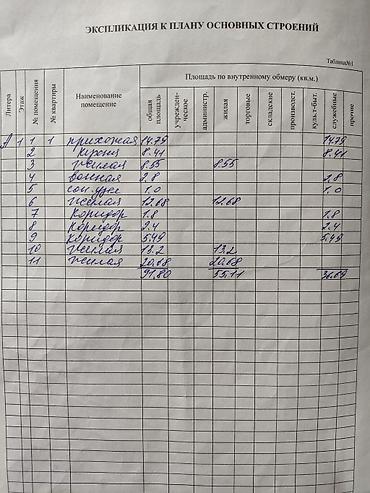 ЭКСПЛИКАЦИЯ К ПЛАНУ ОСНОВНЫХ СТРОЕНИЙ
Таблица№1
Литера Этаж № помещения № квартиры Наименование помещение Площадь по внутреннему обмеру (кв.м.)
общая площадь учрежденческое администр. жилая торговые складские производст. культ-быт. служебные прочие
А 1 1 1 прихожая 14.79 14.79
2 Кухня 8.41 8.41
3 жилая 8.55 8.55
4 ванная 2.8 2.8
5 сан.узел 1.0 1.0
6 жилая 12.68 12.68
7 Коридор 1.8 1.8
8 Коридор 2.4 2.4
9 Коридор 5.49 5.49
10 жилая 13.2 13.2
11 жилая 20.68 20.68
91.80 55.11 36.69